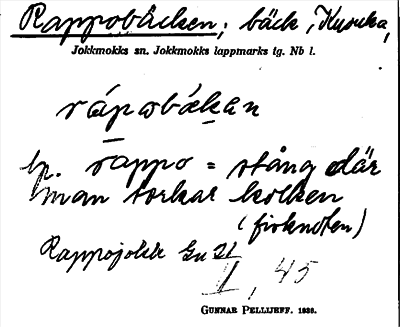 Rappobäcken, bäck,
Jokkmokks sn. Jokkmokks lappmarks tg. Nb l.
rápobäkan
lp. rappo = stång där
man torkar kolken
(fisknoten)
Rappojokk Gn 21
I, 45
GUNNAR PELLIJEFF. 1938.